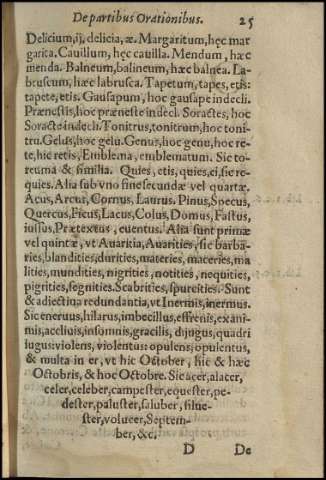 De partibus Orationibus. 25
Delicium, ij, delicia, æ. Margaritum, hęc mar
garita. Cauillum, hęc cauilla. Mendum, hæc
menda. Balneum, balineum, hæc balnea. La-
bruscum, hæc labrusca. Tapetum, tapes, etis:
tapete, etis. Gausapum, hoc gausape indecli.
Prænestis, hoc præneste indecl. Soractes, hoc
Soracte indecl. Tonitrus, tonitrum, hoc toni-
tru. Gelus, hoc gelu. Genus, hoc genu, hoc re-
te, hic retis, Emblema, emblematum. Sic to-
reuma & similia. Quies, etis, quies, ei, sic re-
quies. Alia sub vno fine secundæ vel quartæ.
Acus, Arcus, Cornus, Laurus. Pinus, Specus,
Quercus, Ficus, Lacus, Colus, Domus, Fastus,
iussus, Prætextus, euentus. Alia sunt primæ
vel quintæ, vt Auaritia, Auarities, sic barba-
ries, blandities, durities, materies, maceries, ma
lities, mundities, nigrities, notities, nequities,
pigrities, segnities. Scabrities, spurcities. Sunt
& adiectiua redundantia, vt Inermis, inermus.
Sic eneruus, hilarus, imbecillus, effrenis, exani-
mis, accliuis, insomnis, gracilis, dijugus, quadri
iugus: violens, violentus: opulens, opulentus,
& multa in er, vt hic October, hic & hæc
Octobris, & hoc Octobre. Sic acer, alacer,
celer, celeber, campester, equester, pe-
dester, paluster, saluber, silue-
ster, volucer, Septem-
ber, &c.
D De